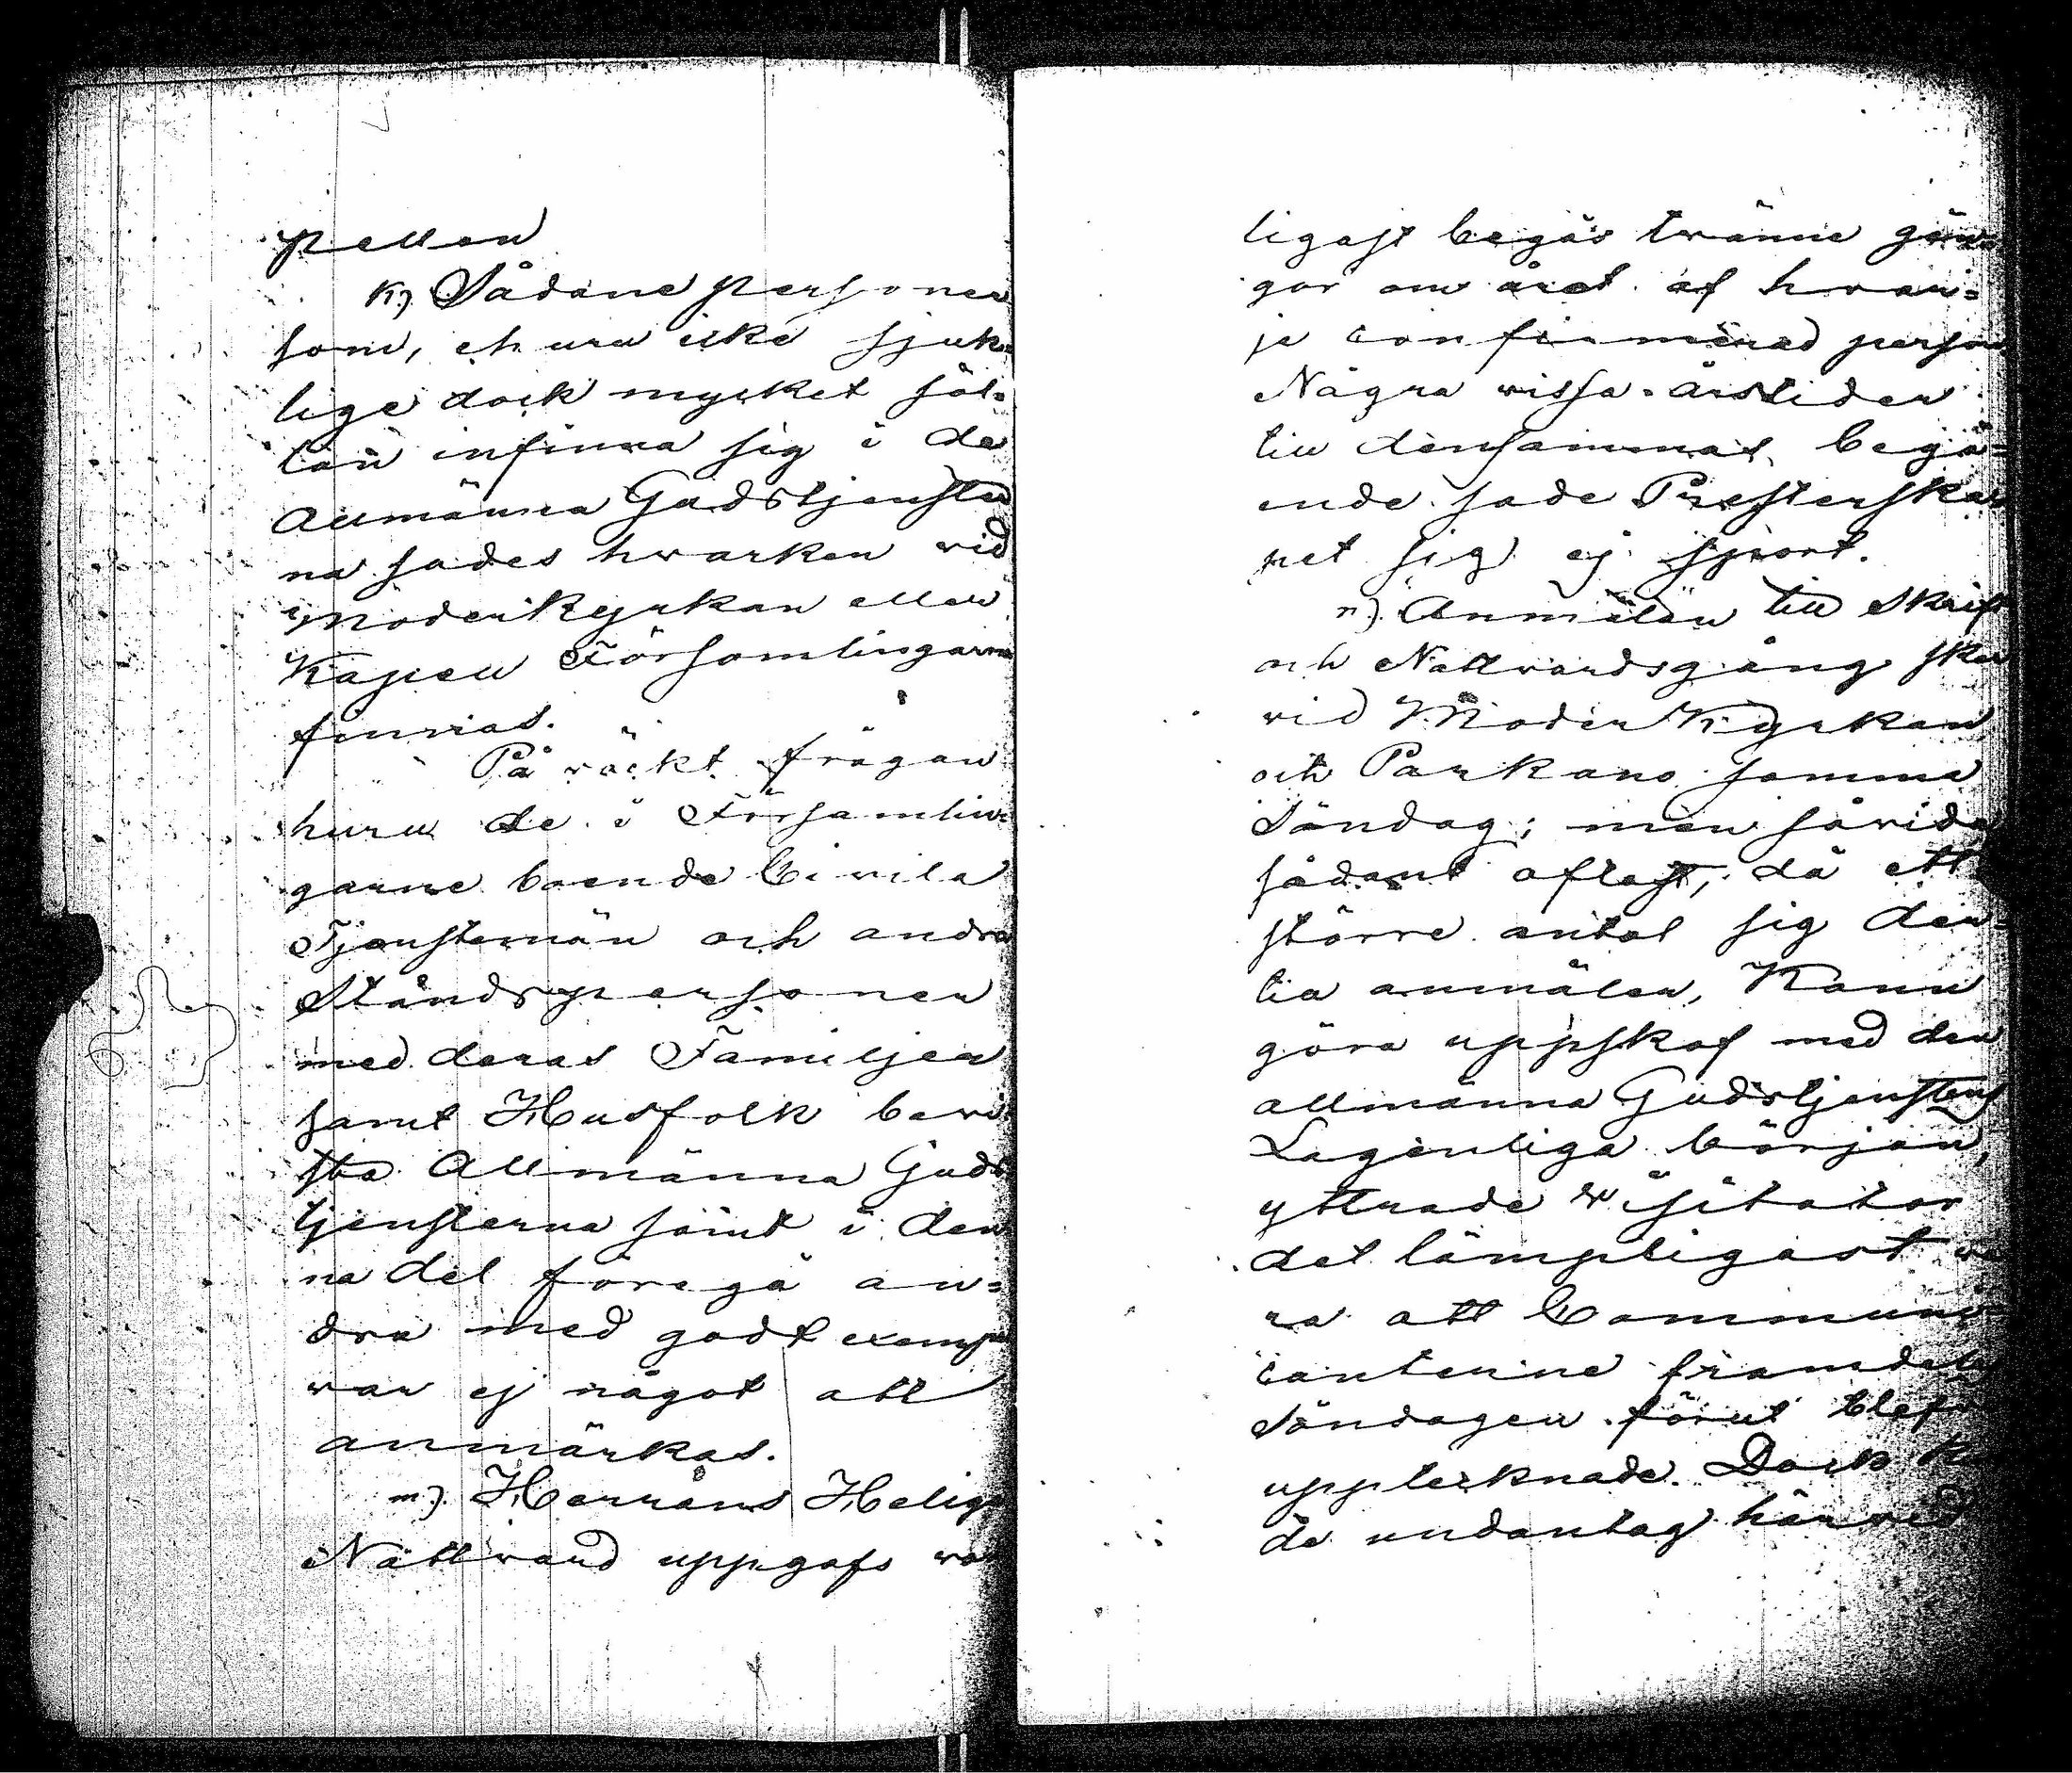 pellen
k.) Sådane personer
som, ehuru icke sjuk=
lige dock mycket säl=
lan infinna sig i de
Allmänna Gudstjenster
na sades hwarken vid
Moderkyrkan eller
Kapell Församlingarne
finnas.
På väckt frågan
huru de i Församlin=
garne boende Civila
Tjenstemän och andra
Ståndspersoner
med deras Familjer
samt Husfolk bevi
sta Allmänna Guds
tjensterna samt i den
na del föregå an=
dra med godt exempel
war ej något att
anmärkas.
m.) Herrans Helige
Nattward uppgafs wa
ligast begås twänne gån
gor om året af hwar=
je confirmerad person
Några wissa årstider
till densammas begå=
ende sade Presterska
pet sig ej sport.
n.) Anmälan till Skrift
och Nattwardsgång sker
vid Moder Kyrkan
och Parkano samma
Söndag; men såvida
sådant oftast, då ett
större antal sig der=
till anmäler, kann
göra uppskof med den
allmänna Gudstjenstens
Lagenliga början,
yttrade Wisitator
det lämpligast wa
ra att Communi
canterne framdeles
Söndagen förut blefvo
upptecknade. Dock
de undantag härwid